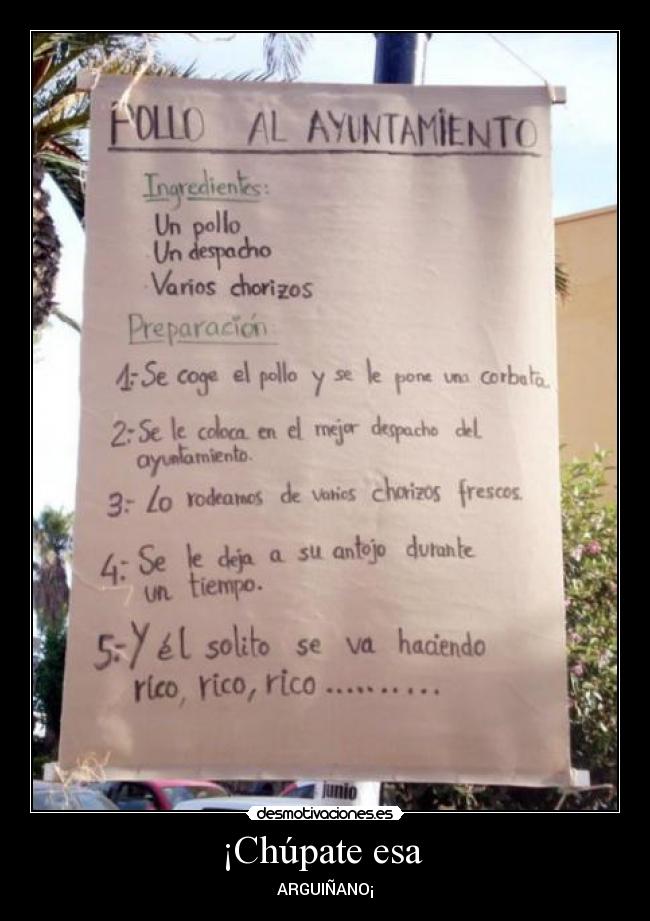 POLLO AL AYUNTAMIENTO
Ingredientes:
Un pollo
Un despacho
Varios chorizos
Preparación
1:- Se coge el pollo y se le pone una corbata.
2:- Se le coloca en el mejor despacho del
ayuntamiento.
3:- Lo rodeamos de varios chorizos frescos.
4:- Se le deja a su antojo durante
un tiempo.
5:- Y él solito se va haciendo
rico, rico, rico ..........
junio
desmotivaciones.es
¡Chúpate esa
ARGUIÑANO¡